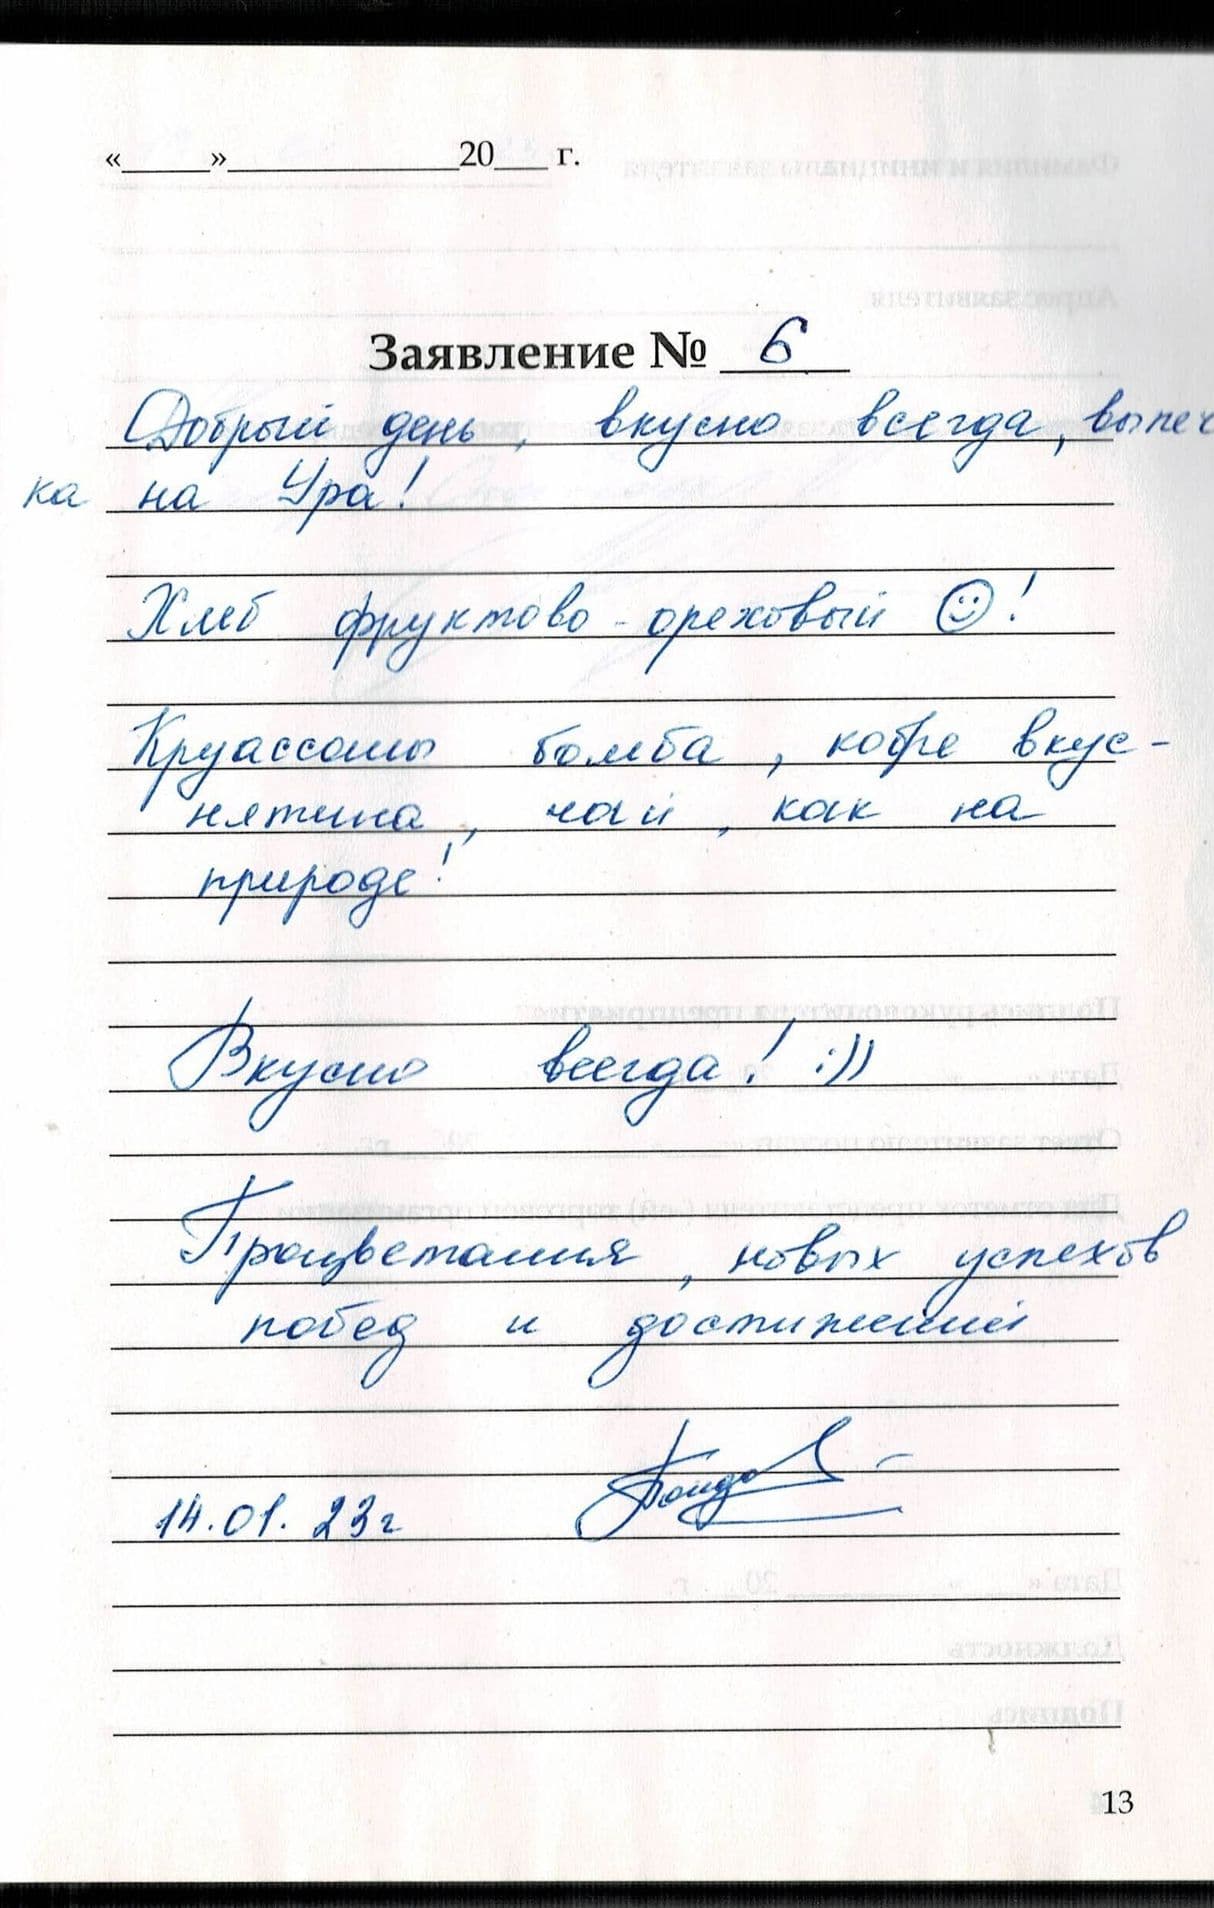 «_____»_____________20___ г.
Заявление № 6
Добрый день, вкусно всегда, выпеч
ка на Ура!
Хлеб фруктово-ореховый ☺!
Круассаны бомба, кофе вкус-
нятина, чай, как на
природе!
Вкусно всегда! :))
Процветания, новых успехов
побед и достижений
14.01.23г
13